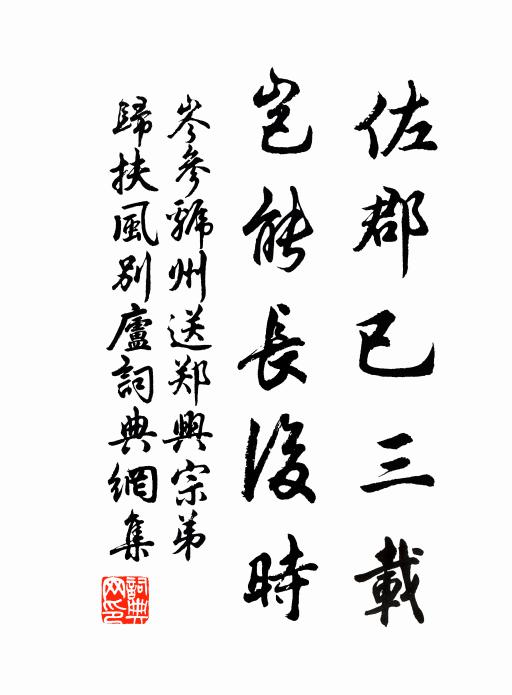 佐郡已三載
岂能長後時
岑參虢州送郑興宗弟
歸扶風别廬詞典網集
詞典
网印